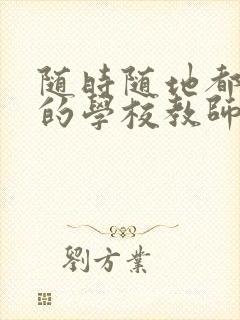 随時随地都
的學校教師
劉方業